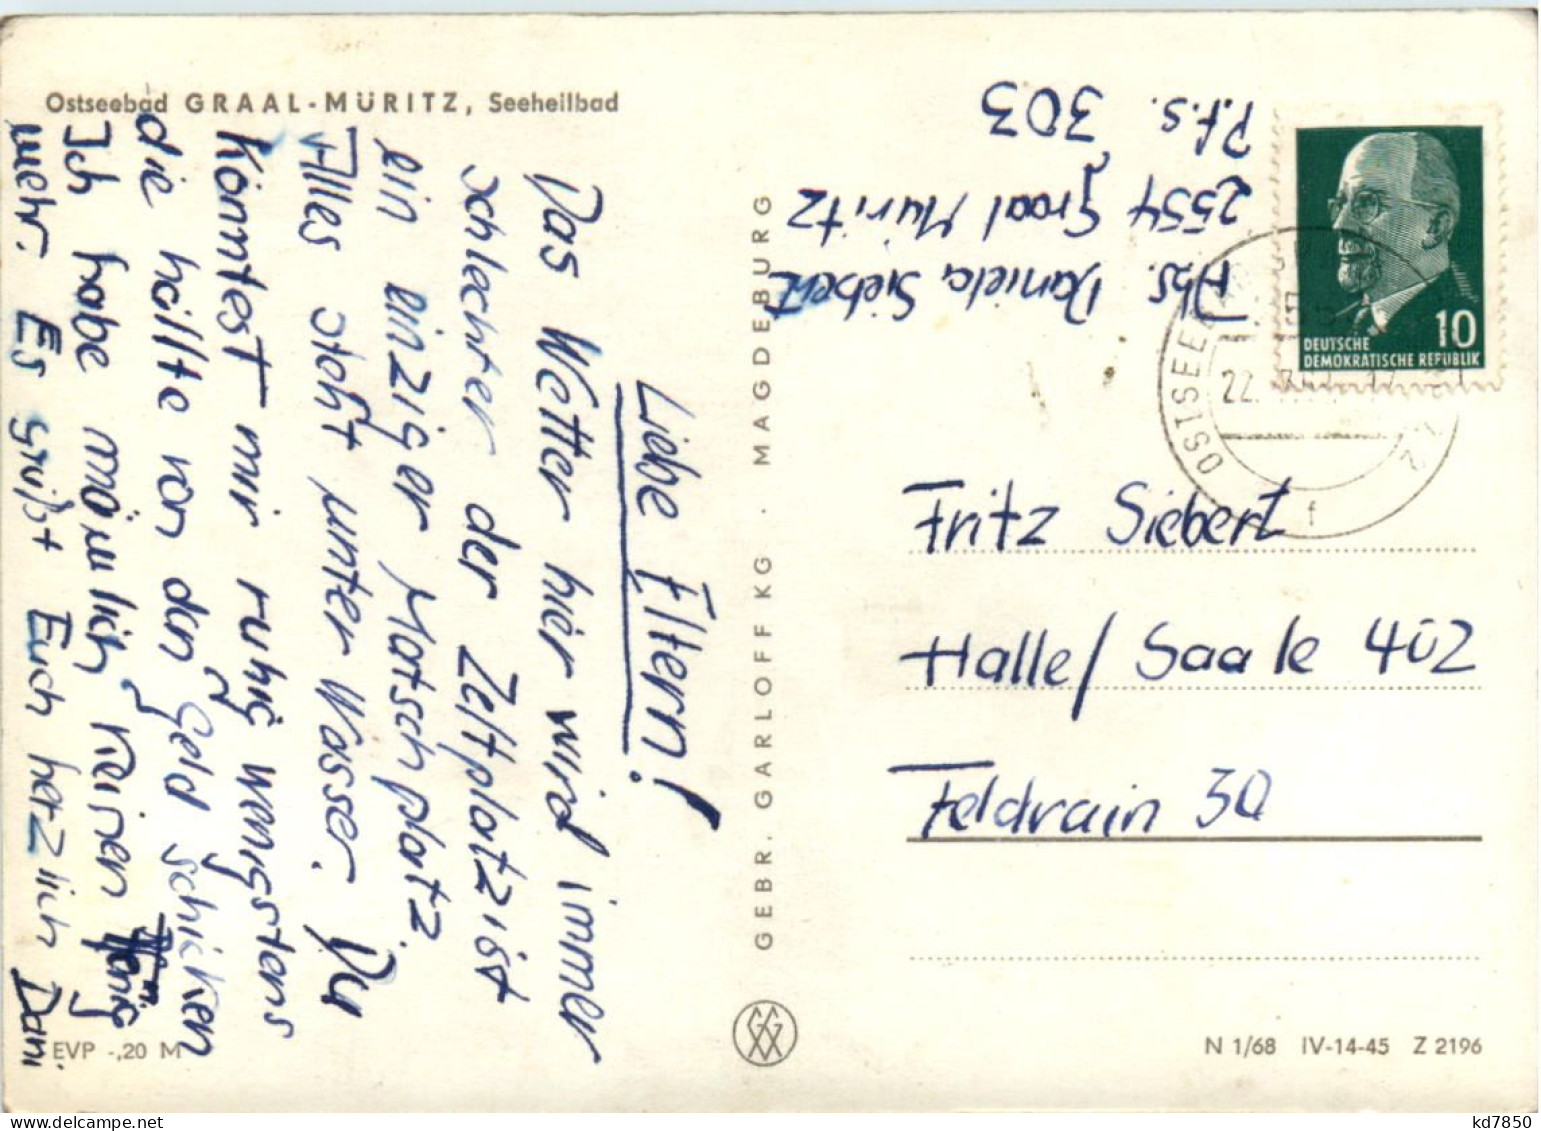 Ostseebad GRAAL-MÜRITZ, Seeheilbad
Liebe Eltern!
Das Wetter hier wird immer
schlechter der Zeltplatz ist
ein einziger Matschplatz.
Alles steht unter Wasser. Du
Könntest mir ruhig wenigstens
die hälfte von den Geld schicken
Ich habe nämlich keinen
mehr. Es grüßt Euch herzlich Dani
EVP -,20 M
GEBR. GARLOFF KG · MAGDEBURG
Abs. Daniela Siebert
2554 Graal Müritz
P.f.S. 303
DEUTSCHE
DEMOKRATISCHE REPUBLIK
10
OSTSEEBAD
22.
f
Fritz Siebert
Halle/ Saale 402
Feldrain 30
N 1/68 IV-14-45 Z 2196
kd7850